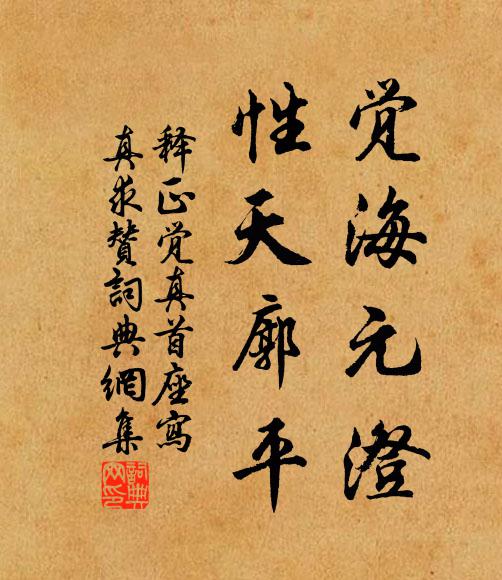 觉海元澄
性天廓平
释正觉真首座写
真求赞词典網集
詞典網印